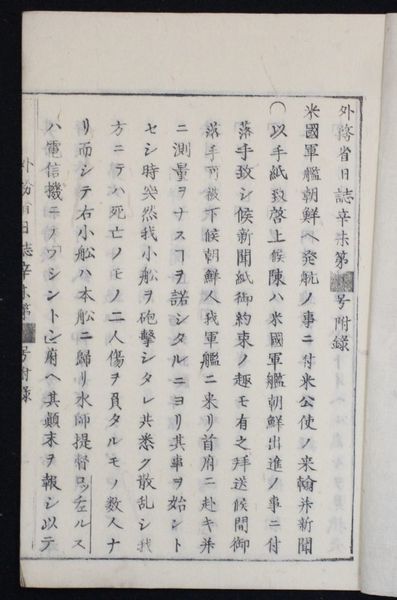 外務省日誌辛未第 号附録
米國軍艦朝鮮ヘ発航ノ事ニ付米公使ノ来翰并新聞
〇以手紙致啓上候陳ハ米國軍艦朝鮮出進ノ事ニ付
落手致シ候新聞紙御約束ノ趣モ有之拜送候間御
落手可被下候朝鮮人我軍艦ニ来リ首府ニ赴キ并
ニ測量ヲナスヿヲ諾シタルニヨリ其事ヲ始ント
セシ時突然我小舩ヲ砲撃シタレ共悉ク散乱シ我
方ニテハ死亡ノモノ二人傷ヲ負タルモノ数人ナ
リ而シテ右小舩ハ本舩ニ歸リ水師提督ロッ左ルス
ハ電信機ニテワシントン府ヘ其顛末ヲ報シ以テ
外務省日誌辛未第 号附録